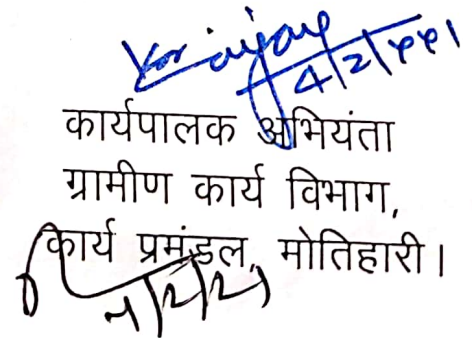 4/2/
कार्यपालक अभियंता
ग्रामीण कार्य विभाग,
कार्य प्रमंडल, मोतिहारी।